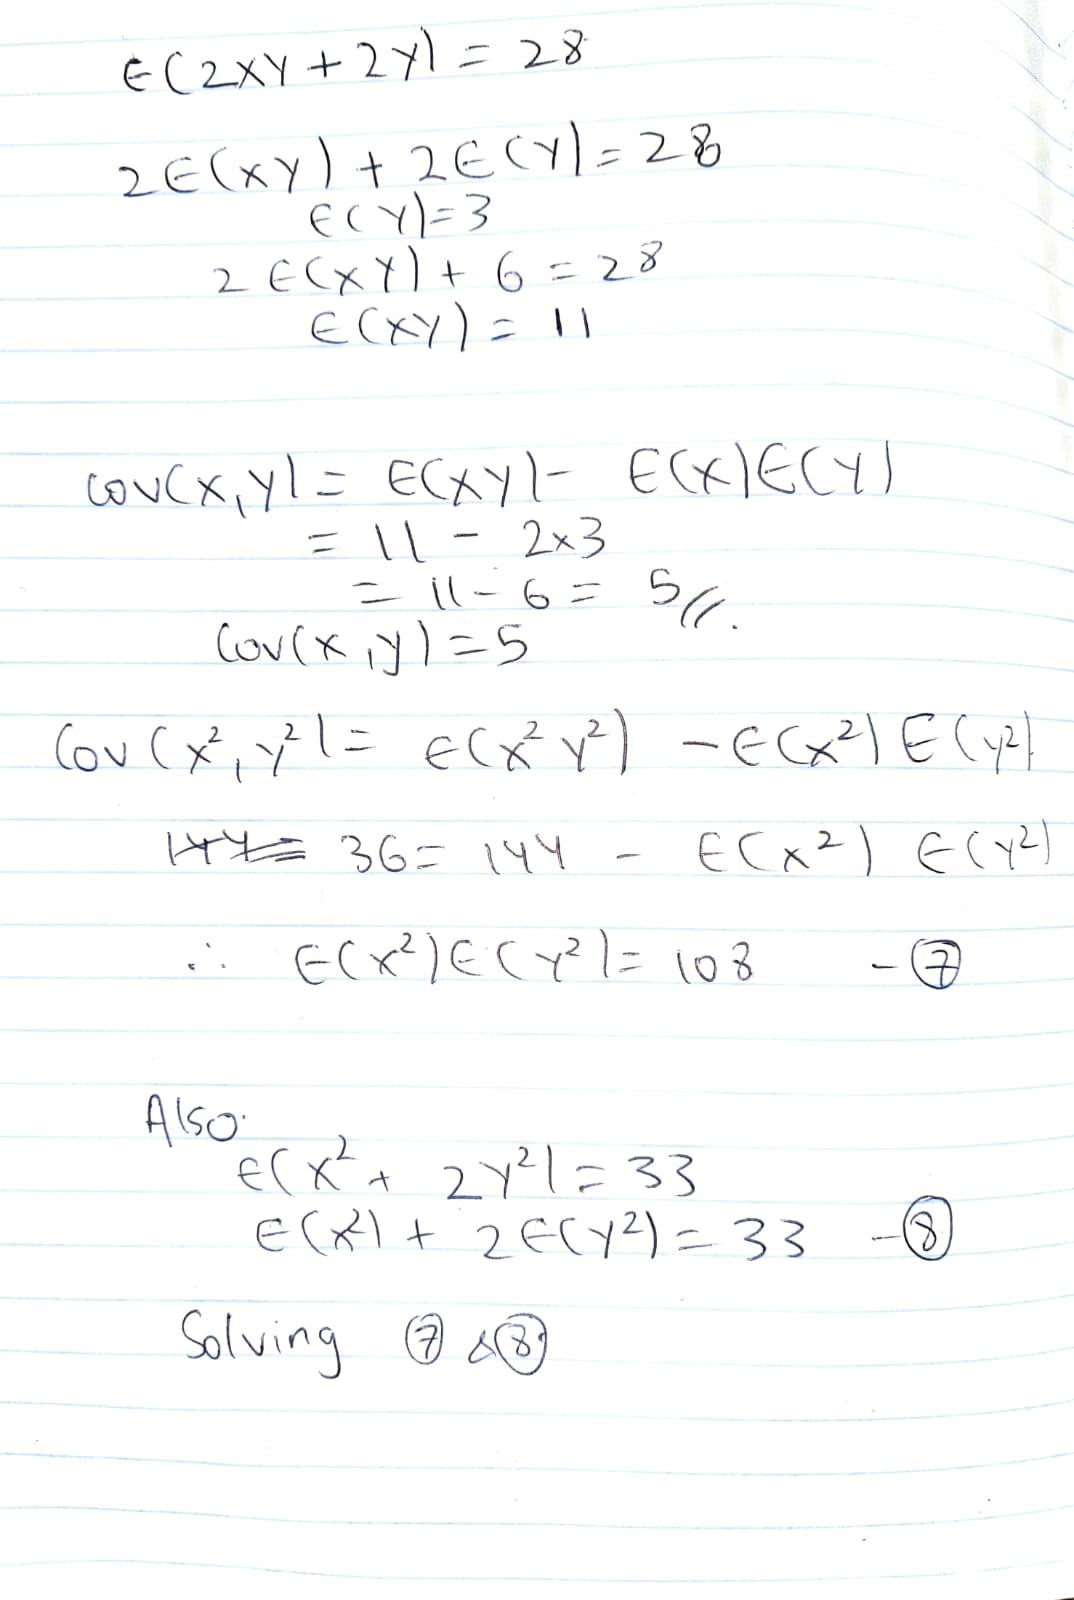 E(2XY + 2Y) = 28
2E(XY) + 2E(Y) = 28
E(Y) = 3
2E(XY) + 6 = 28
E(XY) = 11
Cov(X,Y) = E(XY) - E(X)E(Y)
= 11 - 2x3
= 11 - 6 = 5//.
Cov(X,Y) = 5
Cov(X², Y²) = E(X²Y²) - E(X²)E(Y²)
144= 36 = 144 - E(X²) E(Y²)
∴ E(X²)E(Y²) = 108 - ⑦
Also
E(X² + 2Y²) = 33
E(X²) + 2E(Y²) = 33 - ⑧
Solving ⑦ & ⑧